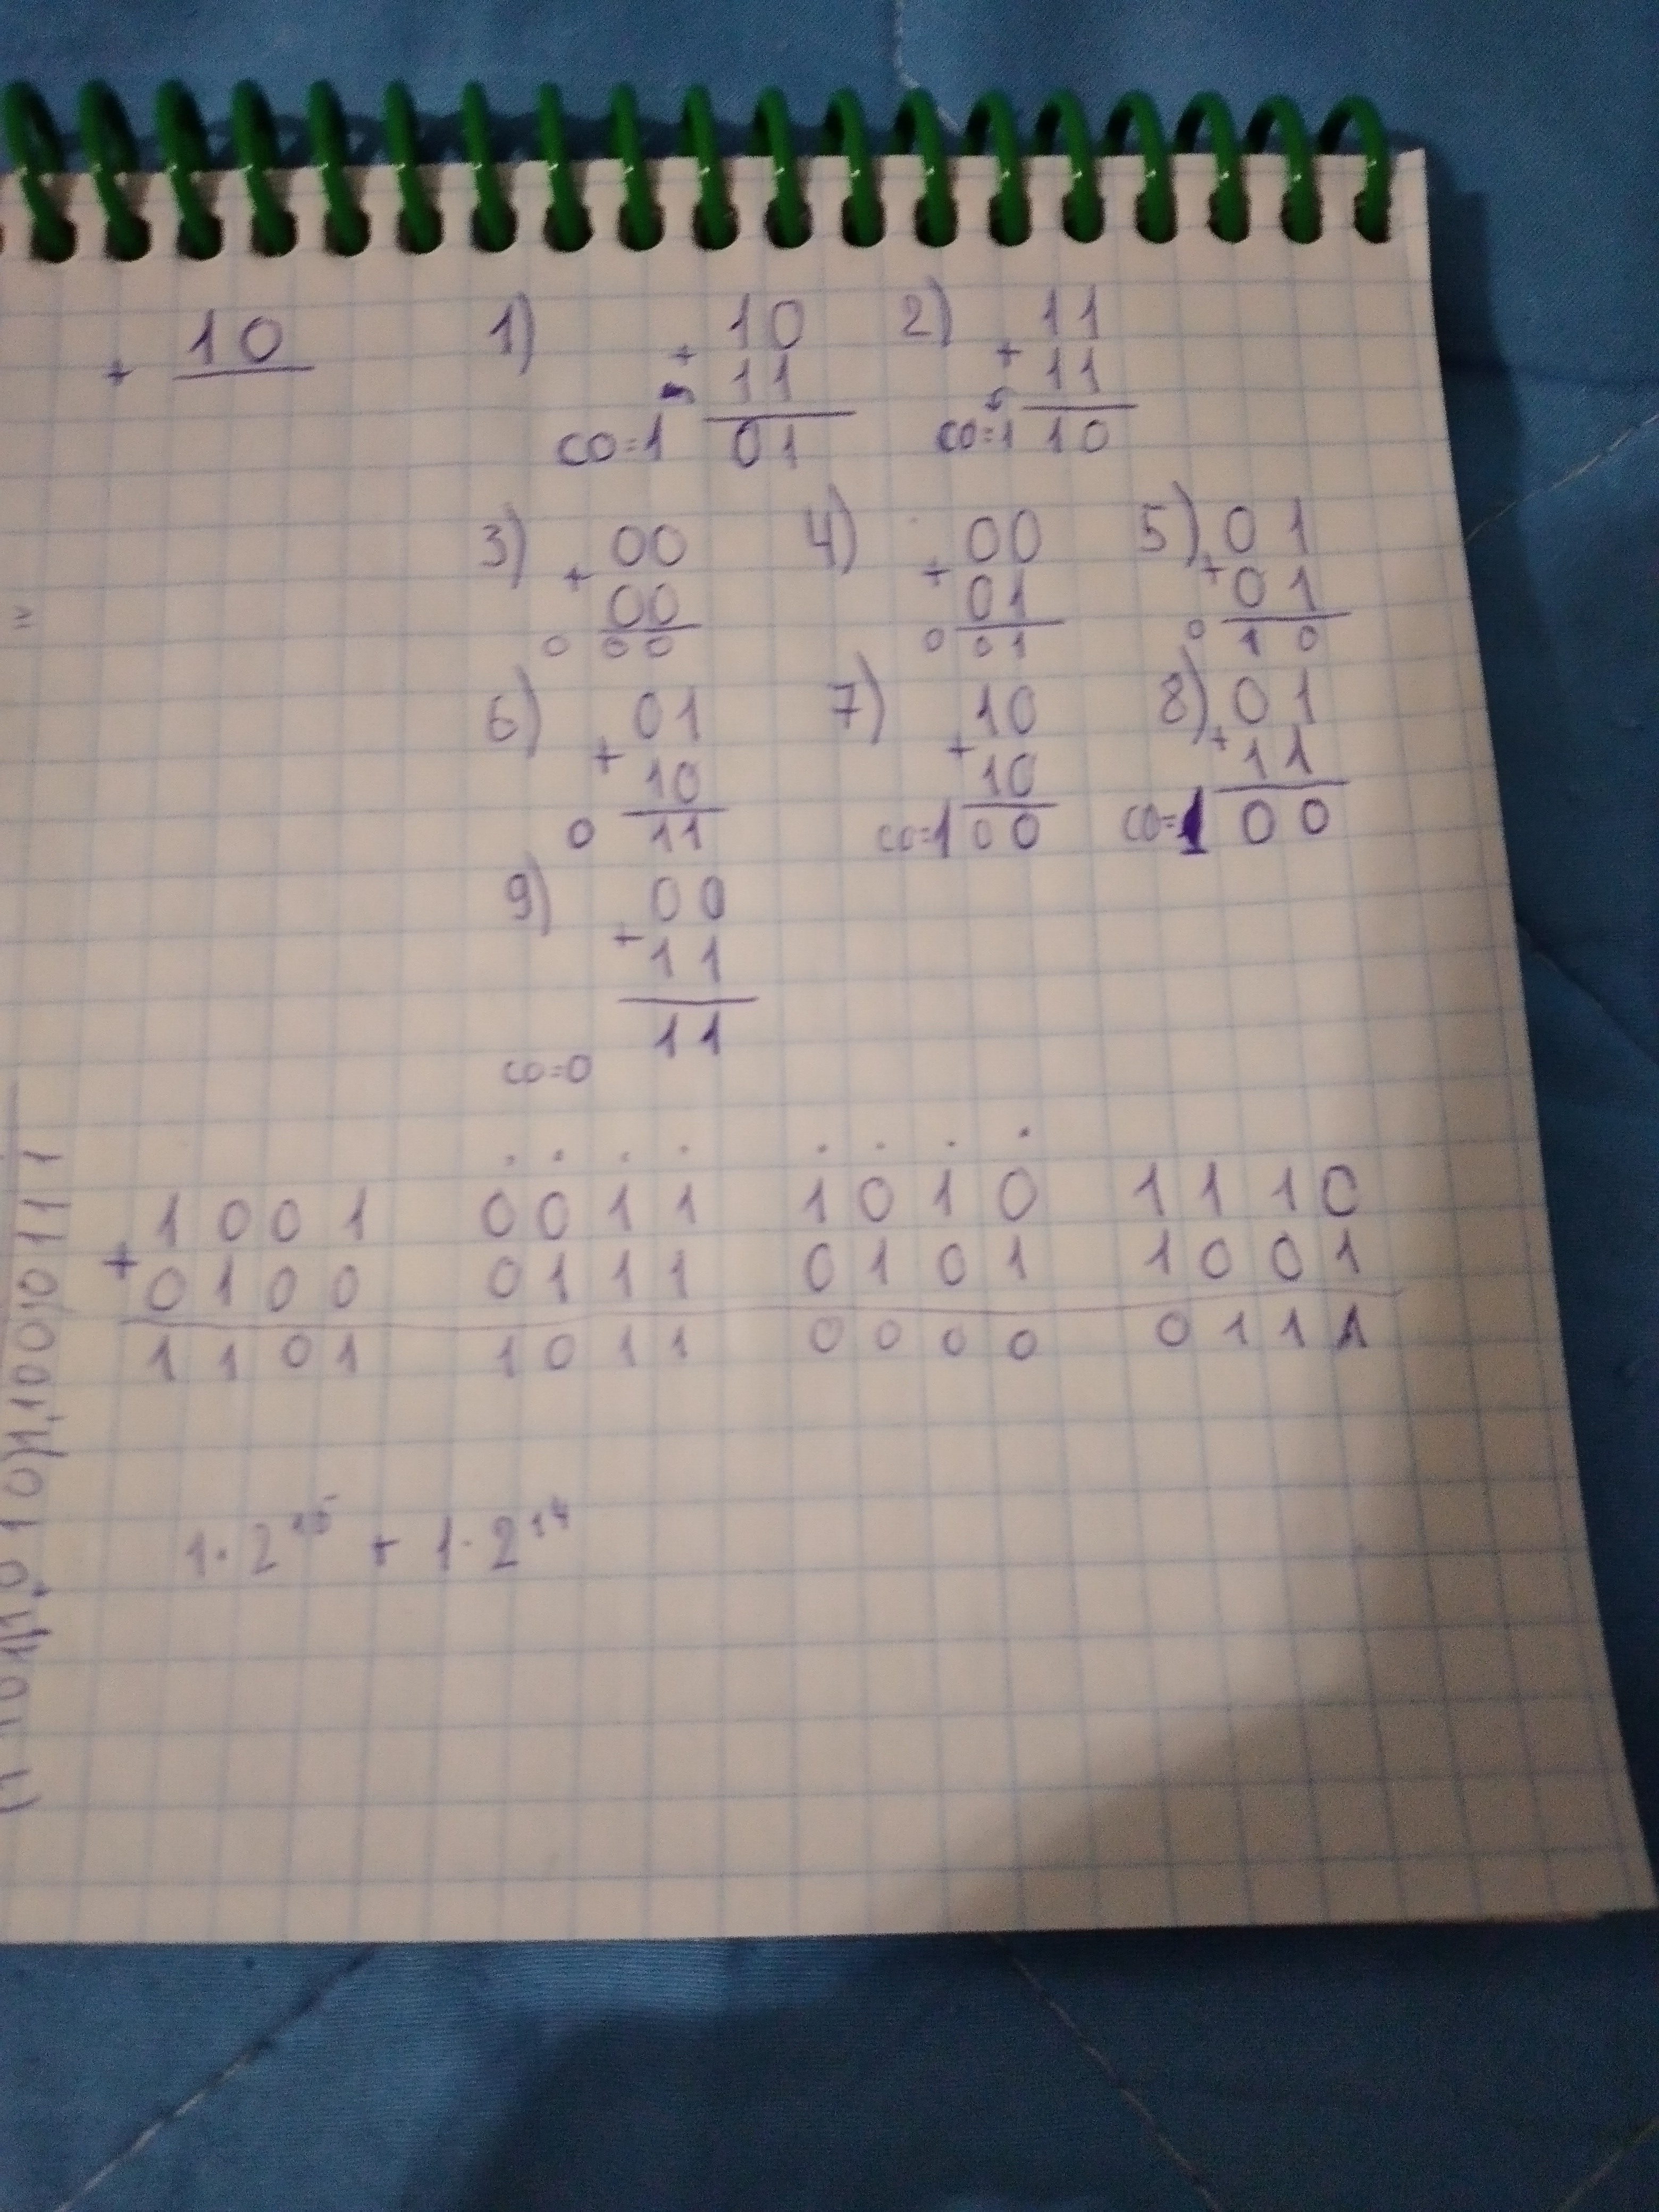 + 10
1) 10 2) 11
+ +
11 11
co=1 01 co=1 10
3) 00 4) 00 5) 01
+ + +
00 01 01
0 00 0 01 0 10
=
6) 01 7) 10 8) 01
+ + +
10 10 11
0 11 co=1 00 co=1 00
9) 00
+
11
11
co=0
. . . . . . . .
1001 0011 1010 1110
+
0100 0111 0101 1001
1101 1011 0000 0111
1·2¹⁵ + 1·2¹⁴